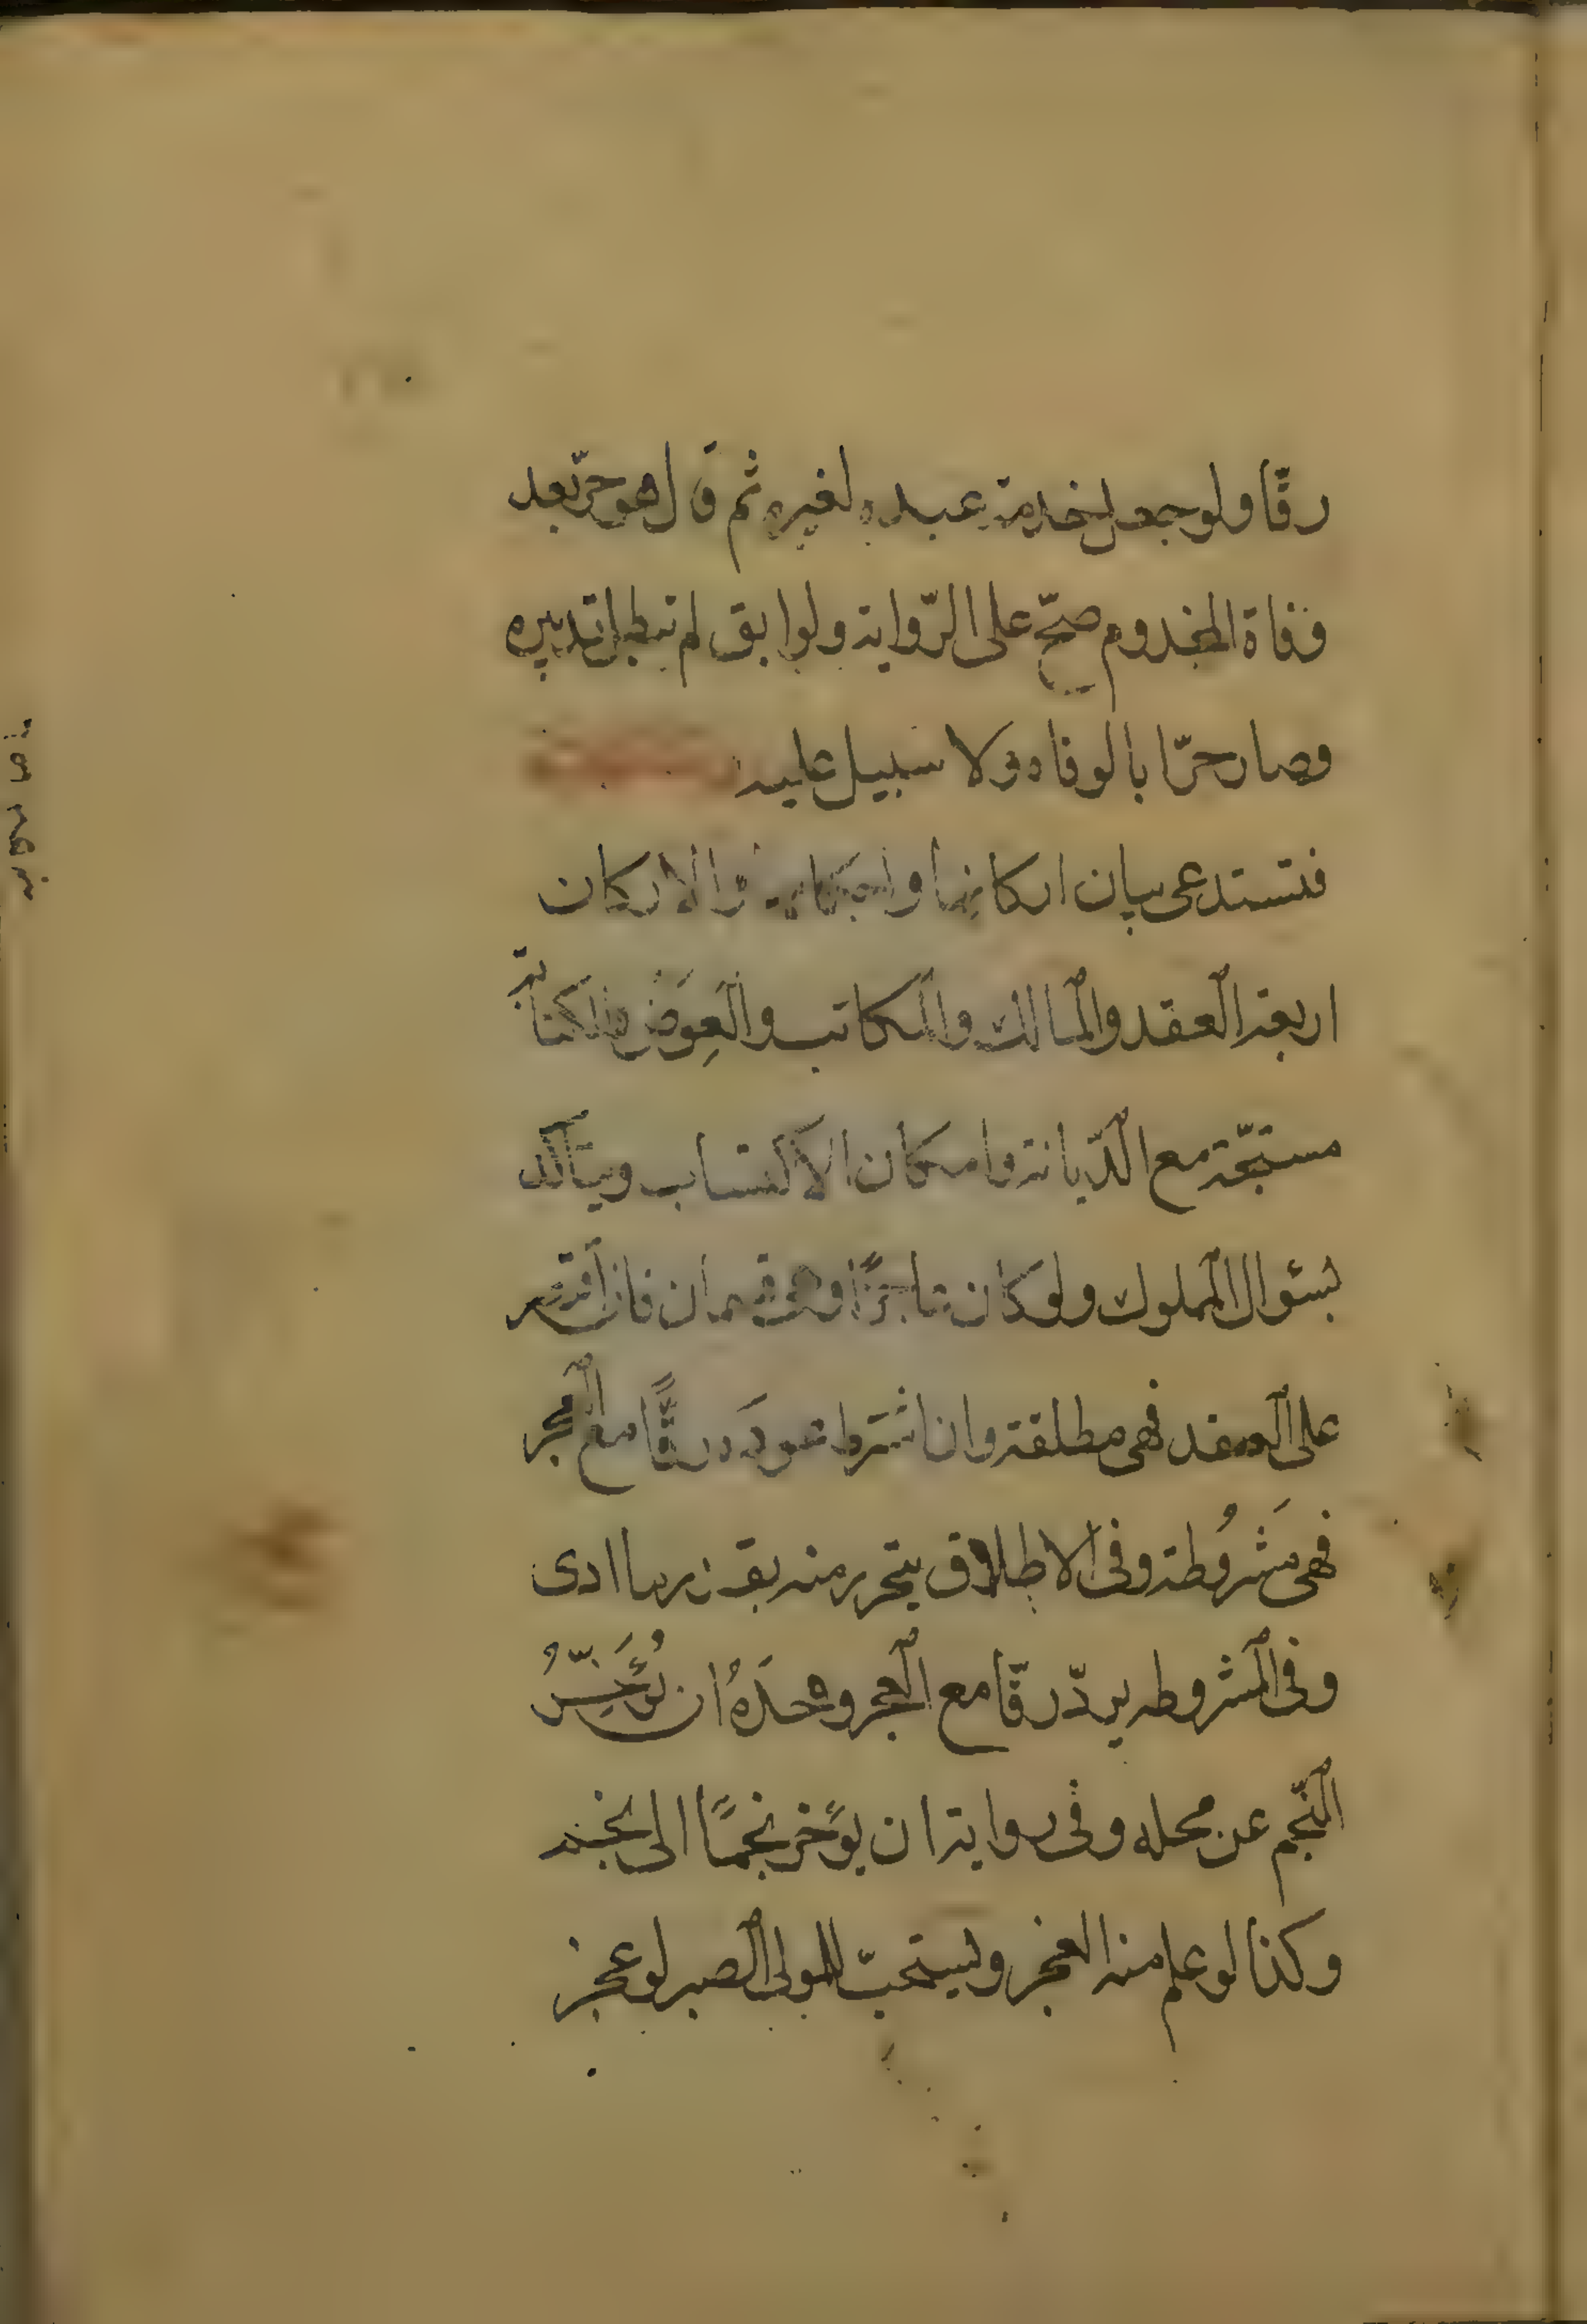 رقّا ولو جعل خدمة عبده لغيره ثم قال هو حرّ بعد
وفاة المخدوم صحّ على الرّواية ولو ابق لم تبطل تدبيره
وصار حرّا بالوفاه ولا سبيل عليه
فتستدعى بيان اركانها واحكامه والاركان
اربعة العقد والمالك والمكاتب والعِوَض والكتابة
مستحبّة مع الدّيانة وامكان الاكتساب ويتأكد
بسئوال المملوك ولو كان عاجزًا فان اقتصر
على العقد فهى مطلقة وان اشترط عوده رقًّا مع العجز
فهى مَشرُوطة وفى الاطلاق يتحرر منه بقدر ما ادى
وفى المشروطه يردّ رقّا مع العجز وحدّهُ ان يُؤَخِّرُ
النّجم عن محله وفى رواية ان يؤخر نجمًا الى نجم
وكذا لو علم منه العجز ويستحبّ للمولى الصبر لو عجز